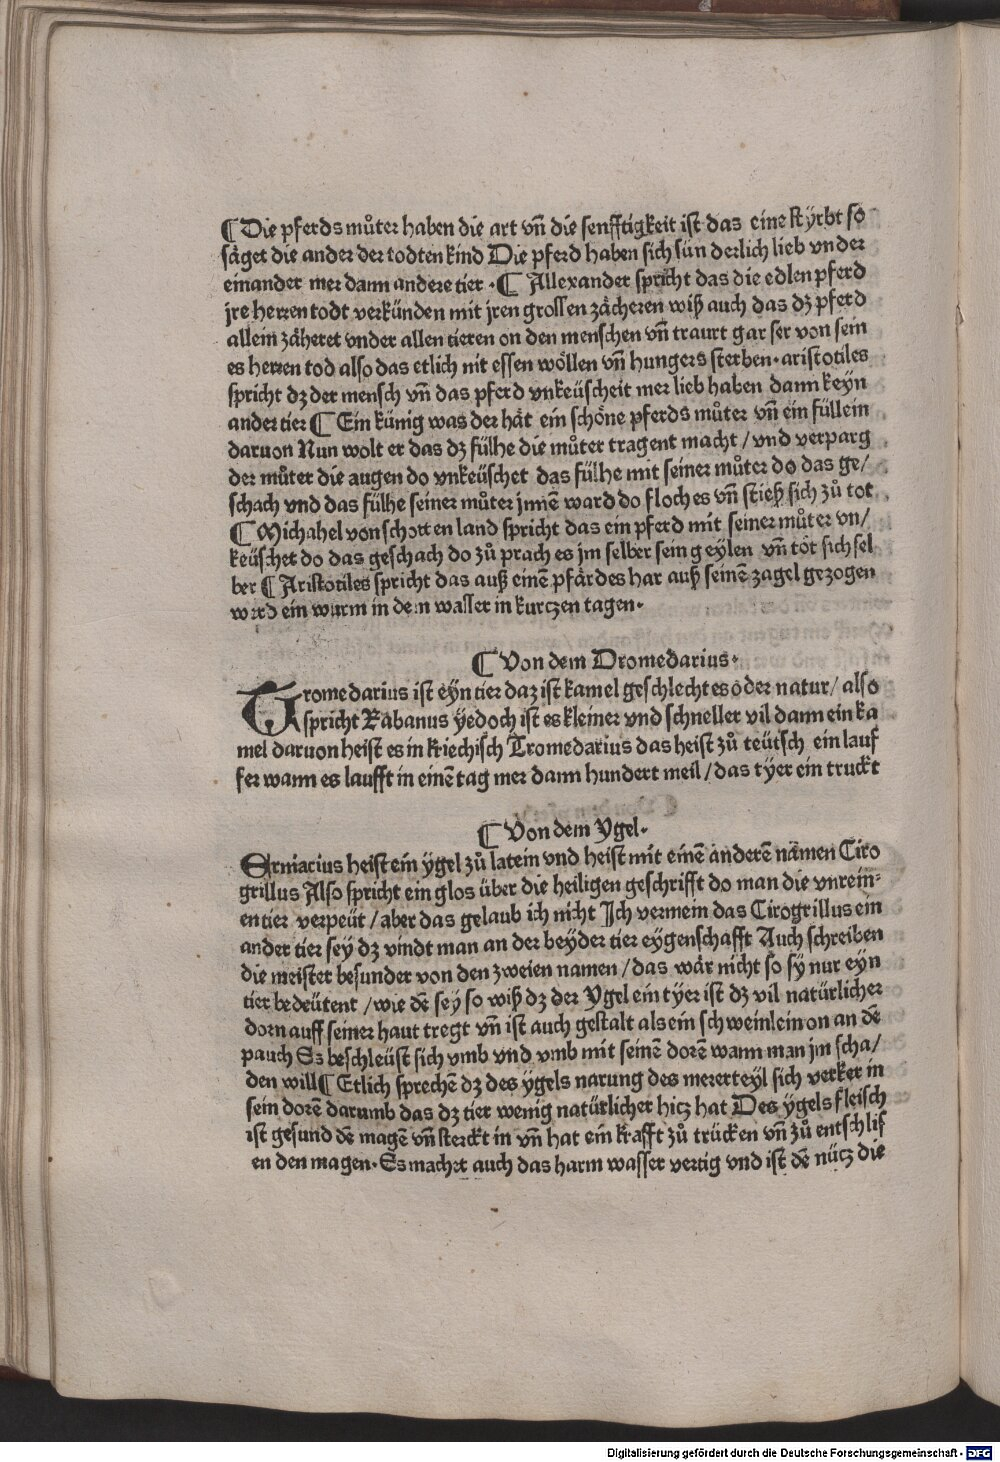 ¶ Die pferds můter haben die art vñ die senfftigkeit ist das eine styrbt so
säget die ander der todten kind Die pferd haben sich sun derlich lieb vnder
einander mer dann andere tier · ¶ Allexander spricht das die edlen pferd
jre herren todt verkünden mit jren grossen zächeren wiß auch das dz pferd
allein zäheret vnder allen tieren on den menschen vñ traurt gar ser von sein
es herren tod also das etlich nit essen wöllen vñ hungers sterben · aristotiles
spricht dz der mensch vñ das pferd vnkeüscheit mer lieb haben dann keyn
ander tier ¶ Ein künig was der hät ein schöne pferds můter vñ ein füllein
daruon Nun wolt er das dz fülhe die můter tragent macht / vnd verparg
der můter die augen do vnkeüschet das fülhe mit seiner můter do das ge/
schach vnd das fülhe seiner můter jnnē ward do floch es vñ stieß sich zů tot
¶ Michahel von schotten land spricht das ein pferd mit seiner můter vn/
keüschet do das geschach do zů prach es jm selber sein geylen vñ töt sich sel
ber ¶ Aristotiles spricht das auß einē pfärdes har auß seinē zagel gezogen
werd ein wurm in dem wasser in kurczen tagen ·
¶ Von dem Dromedarius ·
Tromedarius ist eyn tier daz ist kamel geschlechtes oder natur / also
spricht Rabanus yedoch ist es kleiner vnd schneller vil dann ein ka
mel daruon heist es in kriechisch Tromedarius das heist zů teütsch ein lauf
fer wann es laufft in einē tag mer dann hundert meil / das tyer ein truckt
¶ Von dem Ygel ·
Erniacius heist ein ygel zů latein vnd heist mit einē anderē nämen Ciro
grillus Also spricht ein glos über die heiligen geschrifft do man die vnrein⸗
en tier verpeüt / aber das gelaub ich nicht Ich vermein das Cirogrillus ein
ander tier sey dz vindt man an der beyder tier eygenschafft Auch schreiben
die meister besunder von den zweien namen / das wär nicht so sy nur eyn
tier bedeütent / wie dē sey so wiß dz der Ygel ein tyer ist dz vil natürlicher
dorn auff seiner haut tregt vñ ist auch gestalt als ein schweinlein on an dē
pauch Es beschleüst sich vmb vnd vmb mit seinē dorē wann man jm scha/
den will ¶ Etlich sprechē dz des ygels narung des merer teyl sich verker in
sein dorē darumb das dz tier wenig natürlicher hicz hat Des ygels fleisch
ist gesund dē magē vñ sterckt in vñ hat ein krafft zů trücken vñ zů entschlif
en den magen · Es machet auch das harm wasser vertig vnd ist dē nücz die
Digitalisierung gefördert durch die Deutsche Forschungsgemeinschaft - DFG